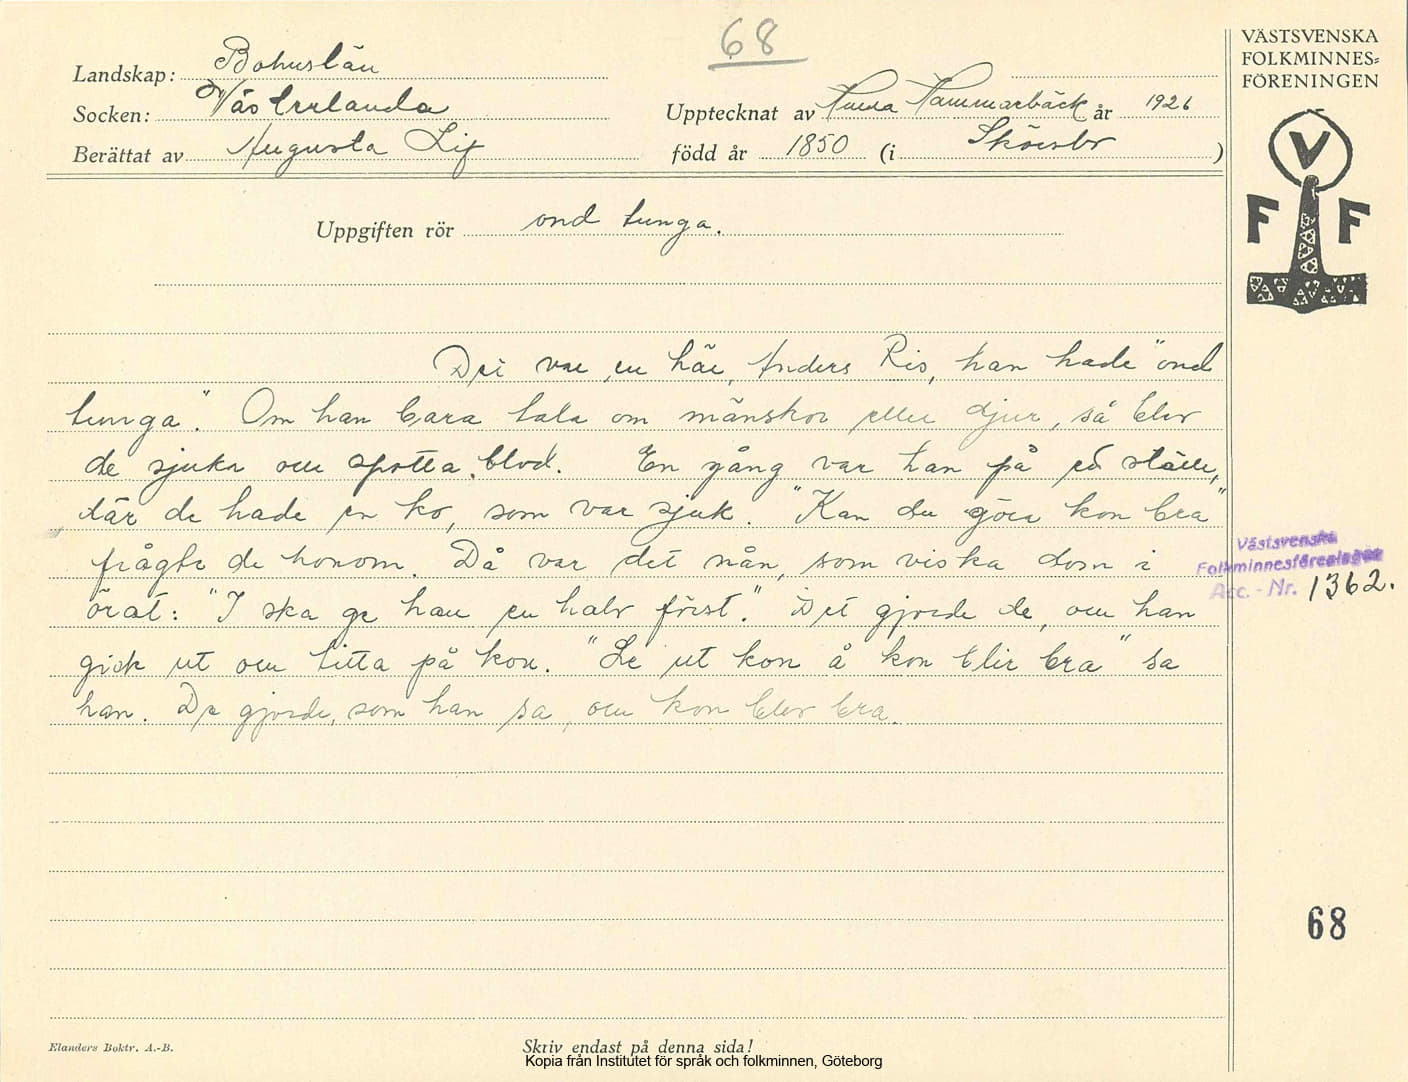 68
VÄSTSVENSKA
FOLKMINNES-
FÖRENINGEN
Landskap: Bohuslän
Socken: Västerlanda
Upptecknat av Anna Hammarbäck år 1926
Berättat av Augusta Lif
född år 1850 (i )
V
F F
Uppgiften rör ond tunga.
Det var en här, Anders Ris, han hade "ond
tunga". Om han bara tala om mänskor eller djur, så blev
de sjuka och spotta blod. En gång var han på ett ställe,
där de hade en ko, som var sjuk. "Kan du göra kon bra"
frågte de honom. Då var det nån, som viska dom i
örat: "I ska ge han en halv först." Det gjorde de, och han
gick ut och titta på kon. "Le ut kon å kon blir bra" sa
han. De gjorde, som han sa, och kon blev bra.
Västsvenska
Folkminnesföreningen
Acc. - Nr. 1362.
68
Elanders Boktr. A.-B.
Skriv endast på denna sida!
Kopia från Institutet för språk och folkminnen, Göteborg